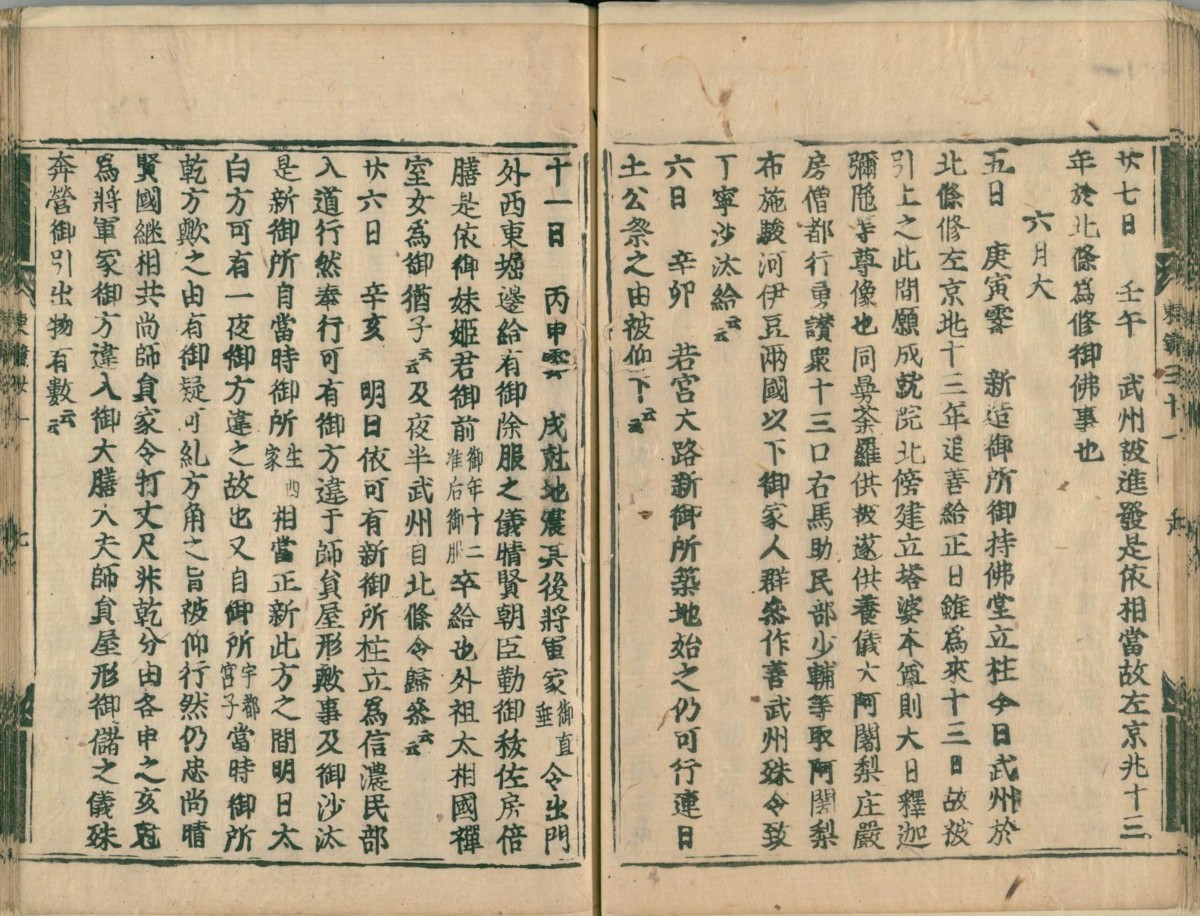 廿七日　壬午　武州被進發是依相當故左京兆十三
年於北條爲修御佛事也
六月大
五日　庚寅霽　新造御所御持佛堂立柱今日武州於
北條修左京兆十三年追善給正日雖爲來十三日故被
引上之此間願成就院北傍建立塔婆本尊則大日釋迦
彌陁等尊像也同曼荼羅供被遂供養儀大阿闍梨庄嚴
房僧都行勇讃衆十三口右馬助民部少輔等取阿闍梨
布施駿河伊豆兩國以下御家人群參作善武州殊令致
丁寧沙汰給云云
六日　辛卯　若宮大路新御所築地始之仍可行連日
土公祭之由被仰下云云
十一日　丙申霽　戌尅地震其後將軍家御直垂令出門
外西東堀邊給有御除服之儀晴賢朝臣勤御秡佐房倍
膳是依御妹姬君御前御年十二准后御服卒給也外祖太相國禪
室女爲御猶子云云及夜半武州自北條令歸參云云
廿六日　辛亥　明日依可有新御所柱立爲信濃民部
入道行然奉行可有御方違于師貟屋形歟事及御沙汰
是新御所自當時御所生西家相當正新此方之間明日太
白方可有一夜御方違之故也又自御所宇都宮子當時御所
乾方歟之由有御疑可糺方角之旨被仰行然仍忠尚晴
賢國継相共尚師貟家令打丈尺非乾分由各申之亥尅
爲將軍家御方違入御大膳大夫師貟屋形御儲之儀殊
奔營御引出物有數云云
東鑑三十一
東鑑卅一
七